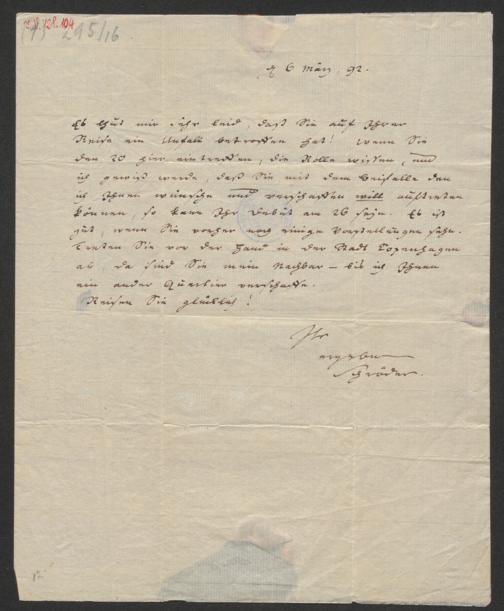 295/16
d 6 März, 92.
Es thut mir sehr leid, daß Sie auf Ihrer
Reise ein Unfall betroffen hat! Wenn Sie
den 20 hier eintreffen, die Rolle wissen, und
ich gewiß werde, daß Sie mit dem Beifalle den
ich Ihnen wünsche und verschaffen will auftreten
können, so kann Ihr Debüt am 26 seyn. Es ist
gut, wenn Sie vorher noch einige Vorstellungen sehn.
Treten Sie vor der Hand in der Stadt Copenhagen
ab, da sind Sie mein Nachbar – bis ich Ihnen
ein ander Quartier verschaffe.
Reisen Sie glücklich!
Ihr
ergebner
Schröder.